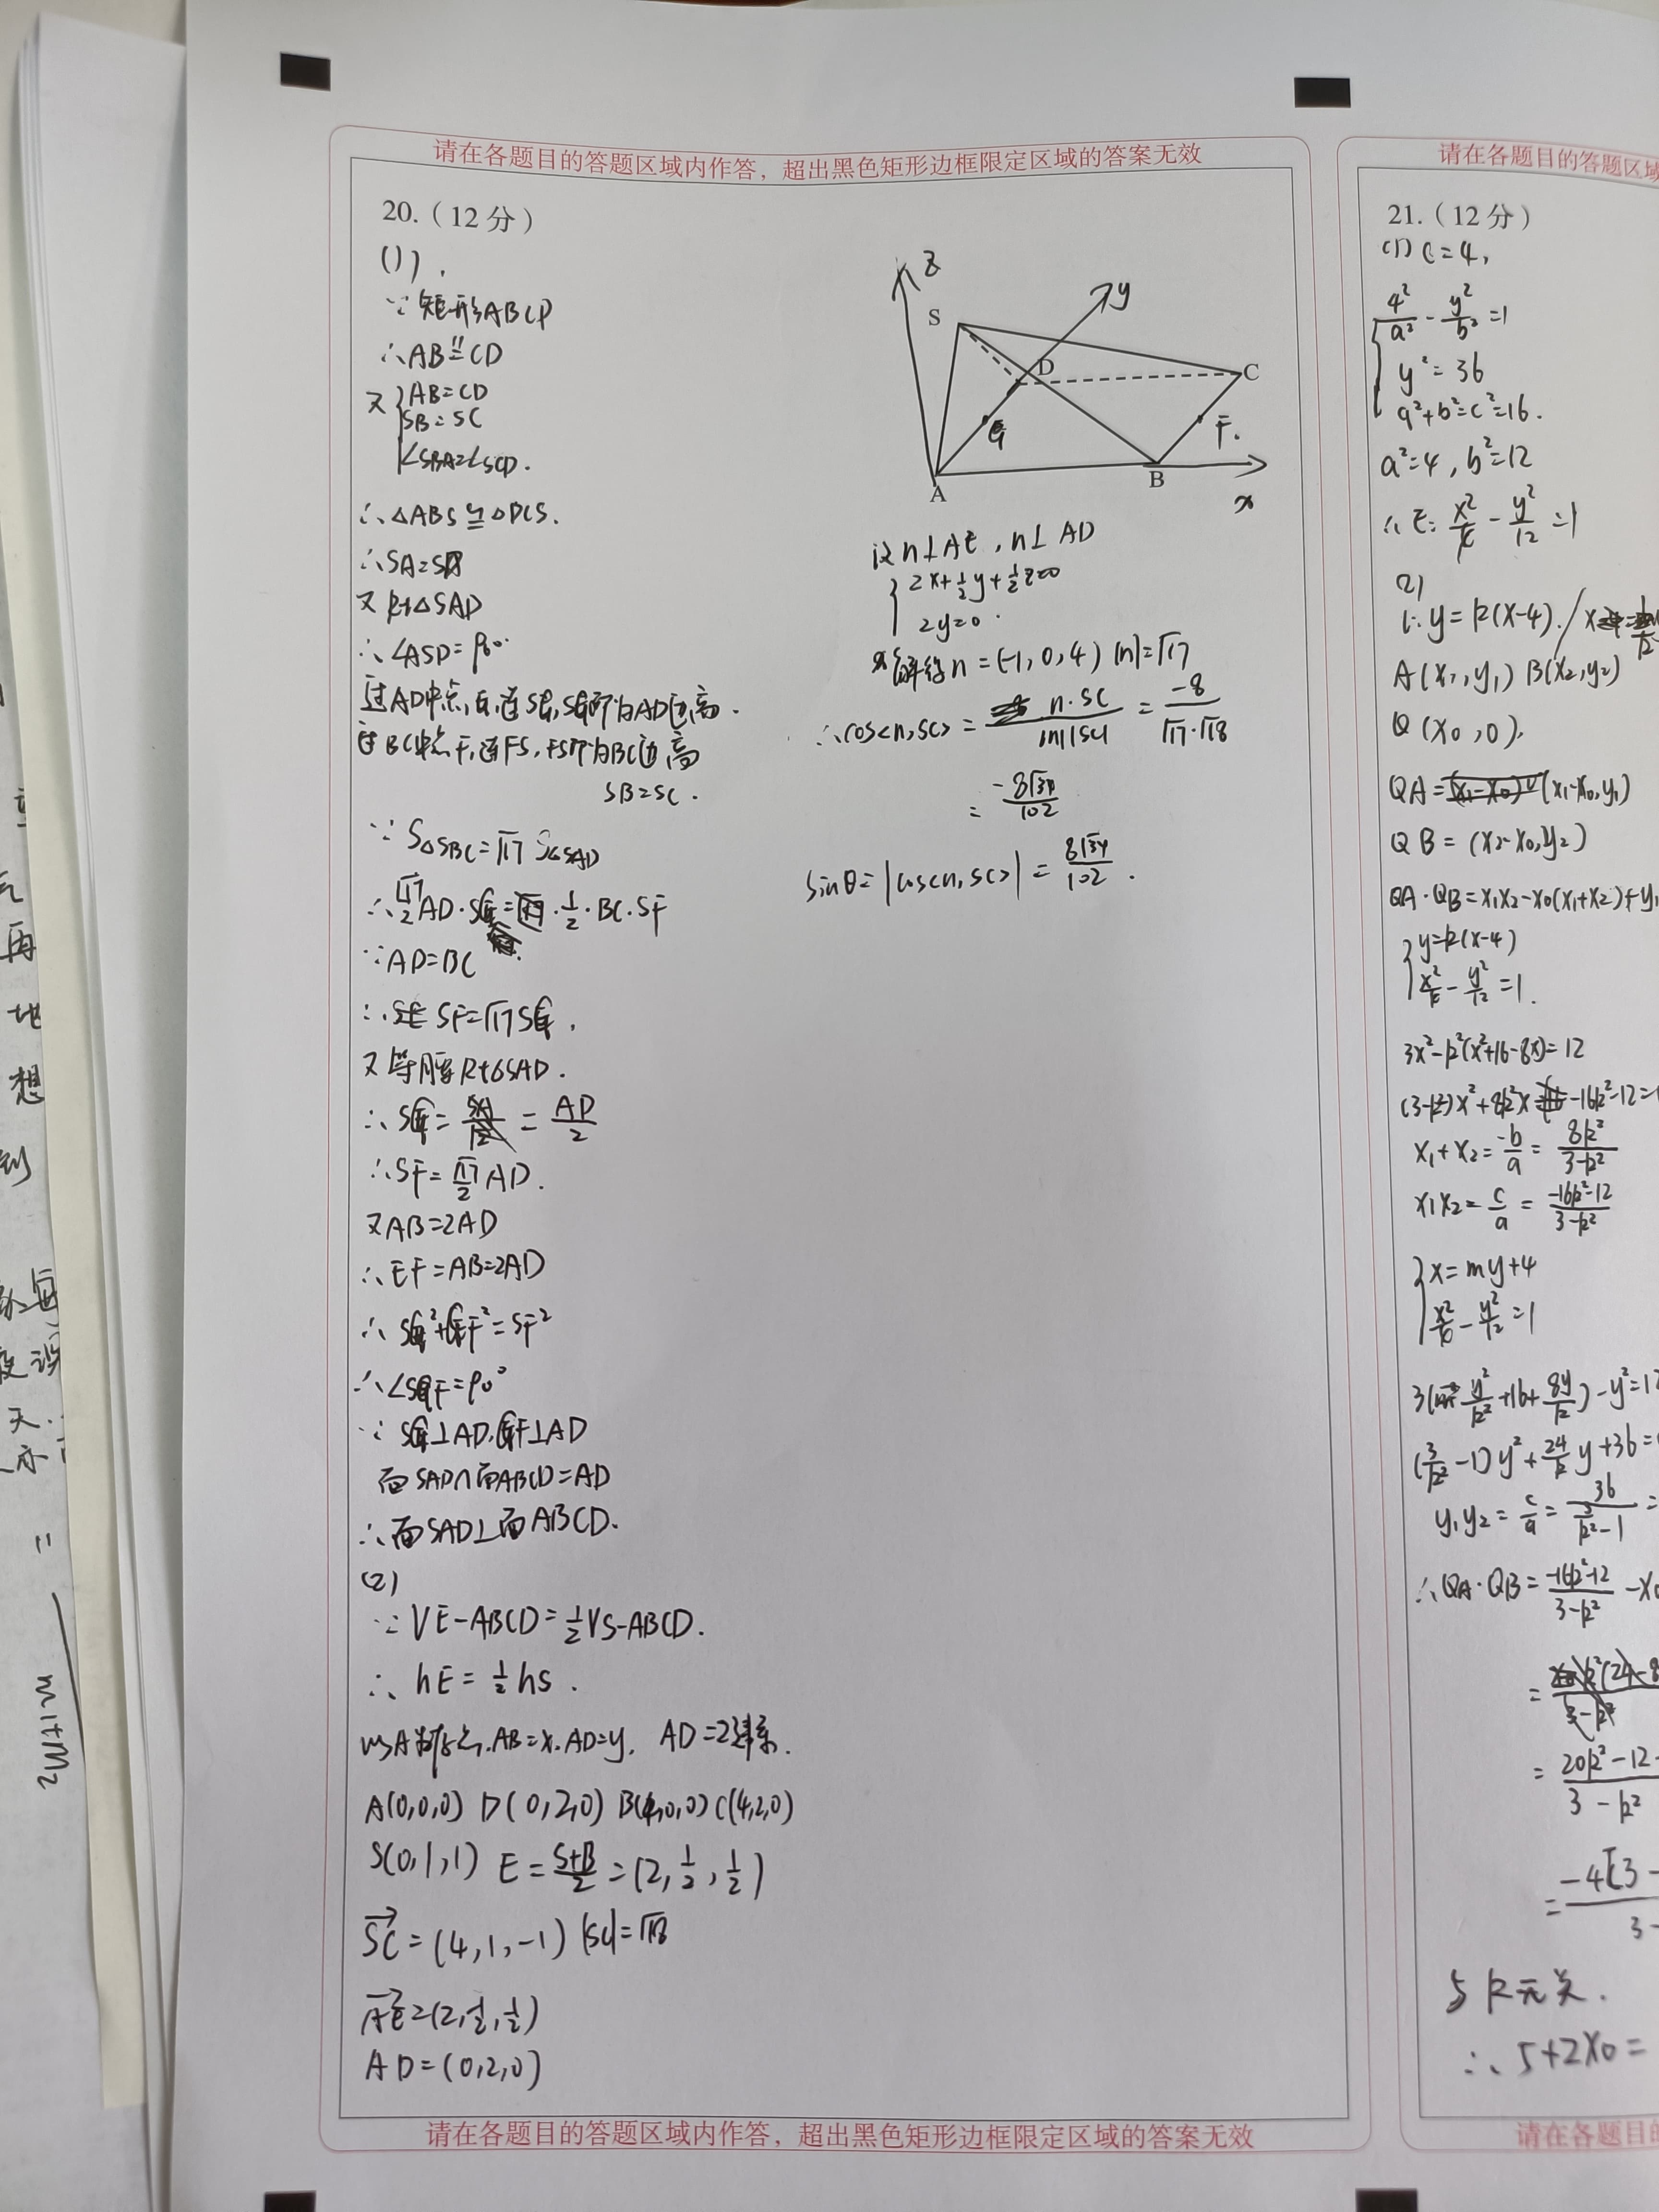 请在各题目的答题区域内作答，超出黑色矩形边框限定区域的答案无效
20.（12分）
(1)．
∵矩形ABCD
∴AB∥=CD
又{AB=CD
SB=SC
∠SBA=∠SCD.
∴△ABS≌△DCS.
∴SA=SD
又Rt△SAD
∴∠ASD=90°
过AD中点G,连SG,SG即为AD边高.
过BC中点F,连FS,FS即为BC边高
SB=SC.
∵S△SBC=√17 S△SAD
∴√17/2 AD·SG=1/2·BC·SF
∵AD=BC
∴SF=√17SG.
又等腰Rt△SAD.
∴SG=AD/2
∴SF=√17/2 AD.
又AB=2AD
∴EF=AB=2AD
∴SG²+GF²=SF²
∴∠SGF=90°
∵SG⊥AD,GF⊥AD
面SAD∩面ABCD=AD
∴面SAD⊥面ABCD.
(2)
∵VE-ABCD=1/2VS-ABCD.
∴hE=1/2hS.
以A为原点.AB=x.AD=y, AD=2建系.
A(0,0,0) D(0,2,0) B(4,0,0) C(4,2,0)
S(0,1,1) E=(S+B)/2=(2,1/2,1/2)
SC=(4,1,-1) |SC|=√18
AE=(2,1/2,1/2)
AD=(0,2,0)
z
y
S
D
C
G
F.
A
B
x
设n⊥AE,n⊥AD
{2x+1/2y+1/2z=0
2y=0.
解得n=(-1,0,4) |n|=√17
∴cos<n,SC>=n·SC/|n||SC|=-8/√17·√18
=-8√34/102
sinθ=|cos<n,SC>|=8√34/102.
请在各题目的答题区域内作答，超出黑色矩形边框限定区域的答案无效
请在各题目的答题区域
21.（12分）
(1) c=4,
{4²/a²-y²/b²=1
y²=36
a²+b²=c²=16.
a²=4,b²=12
∴E:x²/4-y²/12=1
2)
l:y=k(x-4).
A(x₁,y₁) B(x₂,y₂)
Q(x₀,0),
QA=(x₁-x₀,y₁)
QB=(x₂-x₀,y₂)
QA·QB=x₁x₂-x₀(x₁+x₂)+y₁
{y=k(x-4)
x²/4-y²/12=1.
3x²-k²(x²+16-8x)=12
(3-k²)x²+8k²x-16k²-12=
x₁+x₂=-b/a=8k²/3-k²
x₁x₂=c/a=-16k²-12/3-k²
{x=my+4
x²/4-y²/12=1
3(y²/k²+16+8y/k)-y²=12
(3/k²-1)y²+24/k y+36=
y₁y₂=c/a=36/(3/k²-1)=
∴QA·QB=-16k²-12/3-k²-x₀
=20k²-12-/3-k²
=-4[3-/3-
与k无关.
∴5+2x₀=
请在各题目的
再
地
想
到
天.
m1+m2